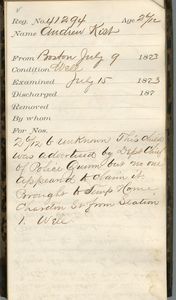 Reg. No. 41294 Age 2 1/2
Name Andrew Kist
From Boston July 9 1873
Condition Well
Examined July 15 1873
Discharged 187
Removed
By whom
For Nos.
2 1/2 & unknown This child
was advertised by Dep Chief
of Police Quinn but no one
appeared to claim it
Brought to Temp Home
Chardon St from Station
1. Well